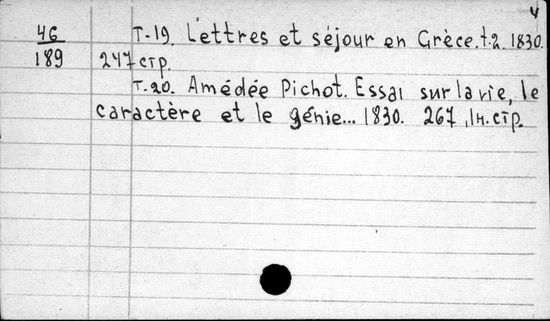 V
46 T-19. Lettres et séjour en Grèce. t.2. 1830.
189 247 стр.
T.20. Amédée Pichot. Essai sur la vie, le
caractère et le génie... 1830. 267, 1н. стр.